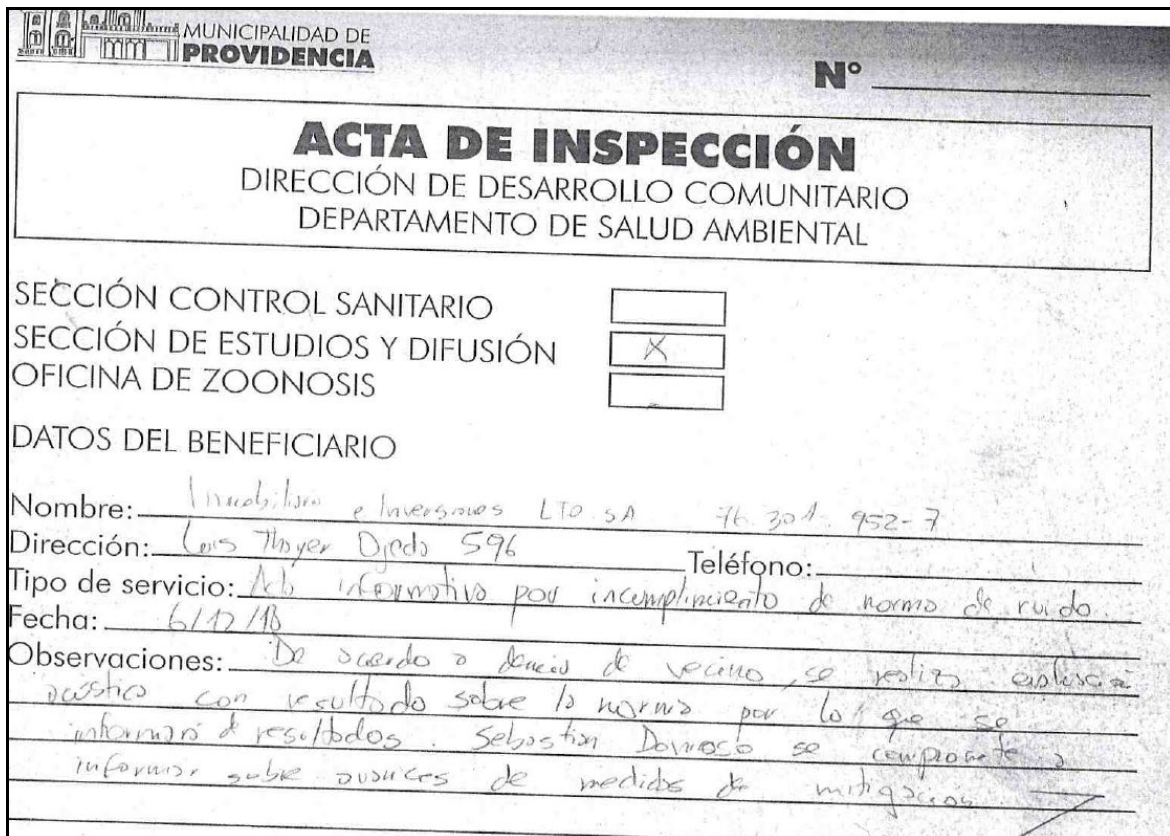 MUNICIPALIDAD DE
PROVIDENCIA
N°
ACTA DE INSPECCIÓN
DIRECCIÓN DE DESARROLLO COMUNITARIO
DEPARTAMENTO DE SALUD AMBIENTAL
SECCIÓN CONTROL SANITARIO
SECCIÓN DE ESTUDIOS Y DIFUSIÓN X
OFICINA DE ZOONOSIS
DATOS DEL BENEFICIARIO
Nombre: e Inversiones LTD SA 76.301.952-7
Dirección: Luis Thayer Ojeda 596 Teléfono:
Tipo de servicio: Acta informativa por incumplimiento de norma de ruido.
Fecha: 6/12/18
Observaciones: De acuerdo a de vecino, se realiza
acústica con resultado sobre la norma por lo que se
resultados. Sebastian Donoso se compromete a
informar sobre avances de medidas de mitigación